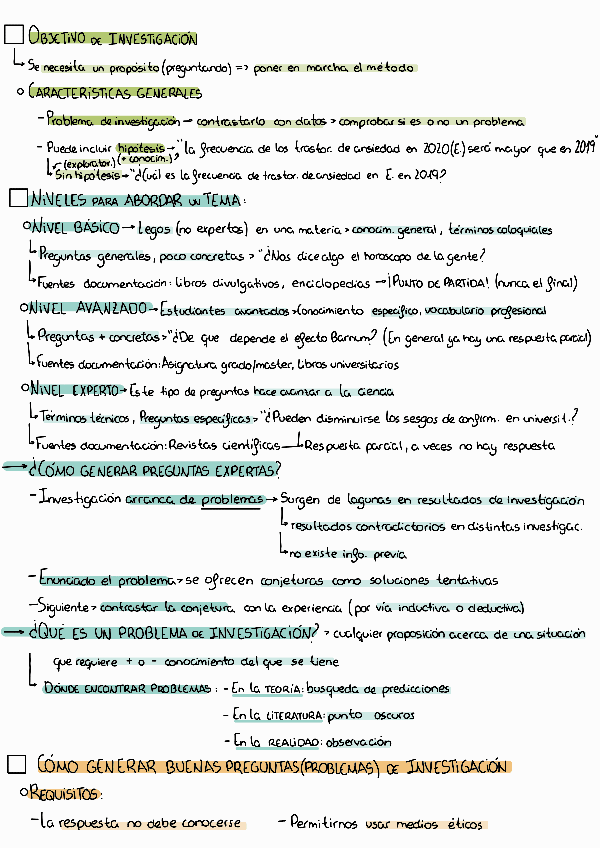 OBJETIVO DE INVESTIGACIÓN
Se necesita un propósito (preguntando) => poner en marcha el método
CARACTERÍSTICAS GENERALES
- Problema de investigación → contrastarlo con datos > comprobar si es o no un problema
- Puede incluir hipótesis → "la frecuencia de los trastor. de ansiedad en 2020 (E.) será mayor que en 2019"
(explorator.) (+ conocim.)
Sin hipótesis → "¿Cuál es la frecuencia de trastor. de ansiedad en E. en 2019?
NIVELES PARA ABORDAR UN TEMA:
NIVEL BÁSICO → Legos (no expertos) en una materia > conocim. general, términos coloquiales
Preguntas generales, poco concretas > "¿Nos dice algo el horoscopo de la gente?
Fuentes documentación: Libros divulgativos, enciclopedias → ¡PUNTO DE PARTIDA! (nunca el final)
NIVEL AVANZADO → Estudiantes avanzados > Conocimiento específico, vocabulario profesional
Preguntas + concretas > "¿De que depende el efecto Barnum? (En general ya hay una respuesta parcial)
Fuentes documentación: Asignatura grado/master, Libros universitarios
NIVEL EXPERTO → Este tipo de preguntas hace avanzar a la ciencia
Términos técnicos, Preguntas específicas > "¿Pueden disminuirse los sesgos de confirm. en universit.?
Fuentes documentación: Revistas científicas → Respuesta parcial, a veces no hay respuesta
→ ¿CÓMO GENERAR PREGUNTAS EXPERTAS?
- Investigación arranca de problemas → Surgen de lagunas en resultados de investigación
resultados contradictorios en distintas investigac.
no existe info. previa
- Enunciado el problema > se ofrecen conjeturas como soluciones tentativas
- Siguiente > contrastar la conjetura con la experiencia (por vía inductiva o deductiva)
→ ¿QUÉ ES UN PROBLEMA DE INVESTIGACIÓN? > cualquier proposición acerca de una situación
que requiere + o - conocimiento del que se tiene
DÓNDE ENCONTRAR PROBLEMAS: - En la TEORÍA: busqueda de predicciones
- En la LITERATURA: punto oscuros
- En la REALIDAD: observación
CÓMO GENERAR BUENAS PREGUNTAS (PROBLEMAS) DE INVESTIGACIÓN
REQUISITOS:
- La respuesta no debe conocerse - Permitirnos usar medios éticos